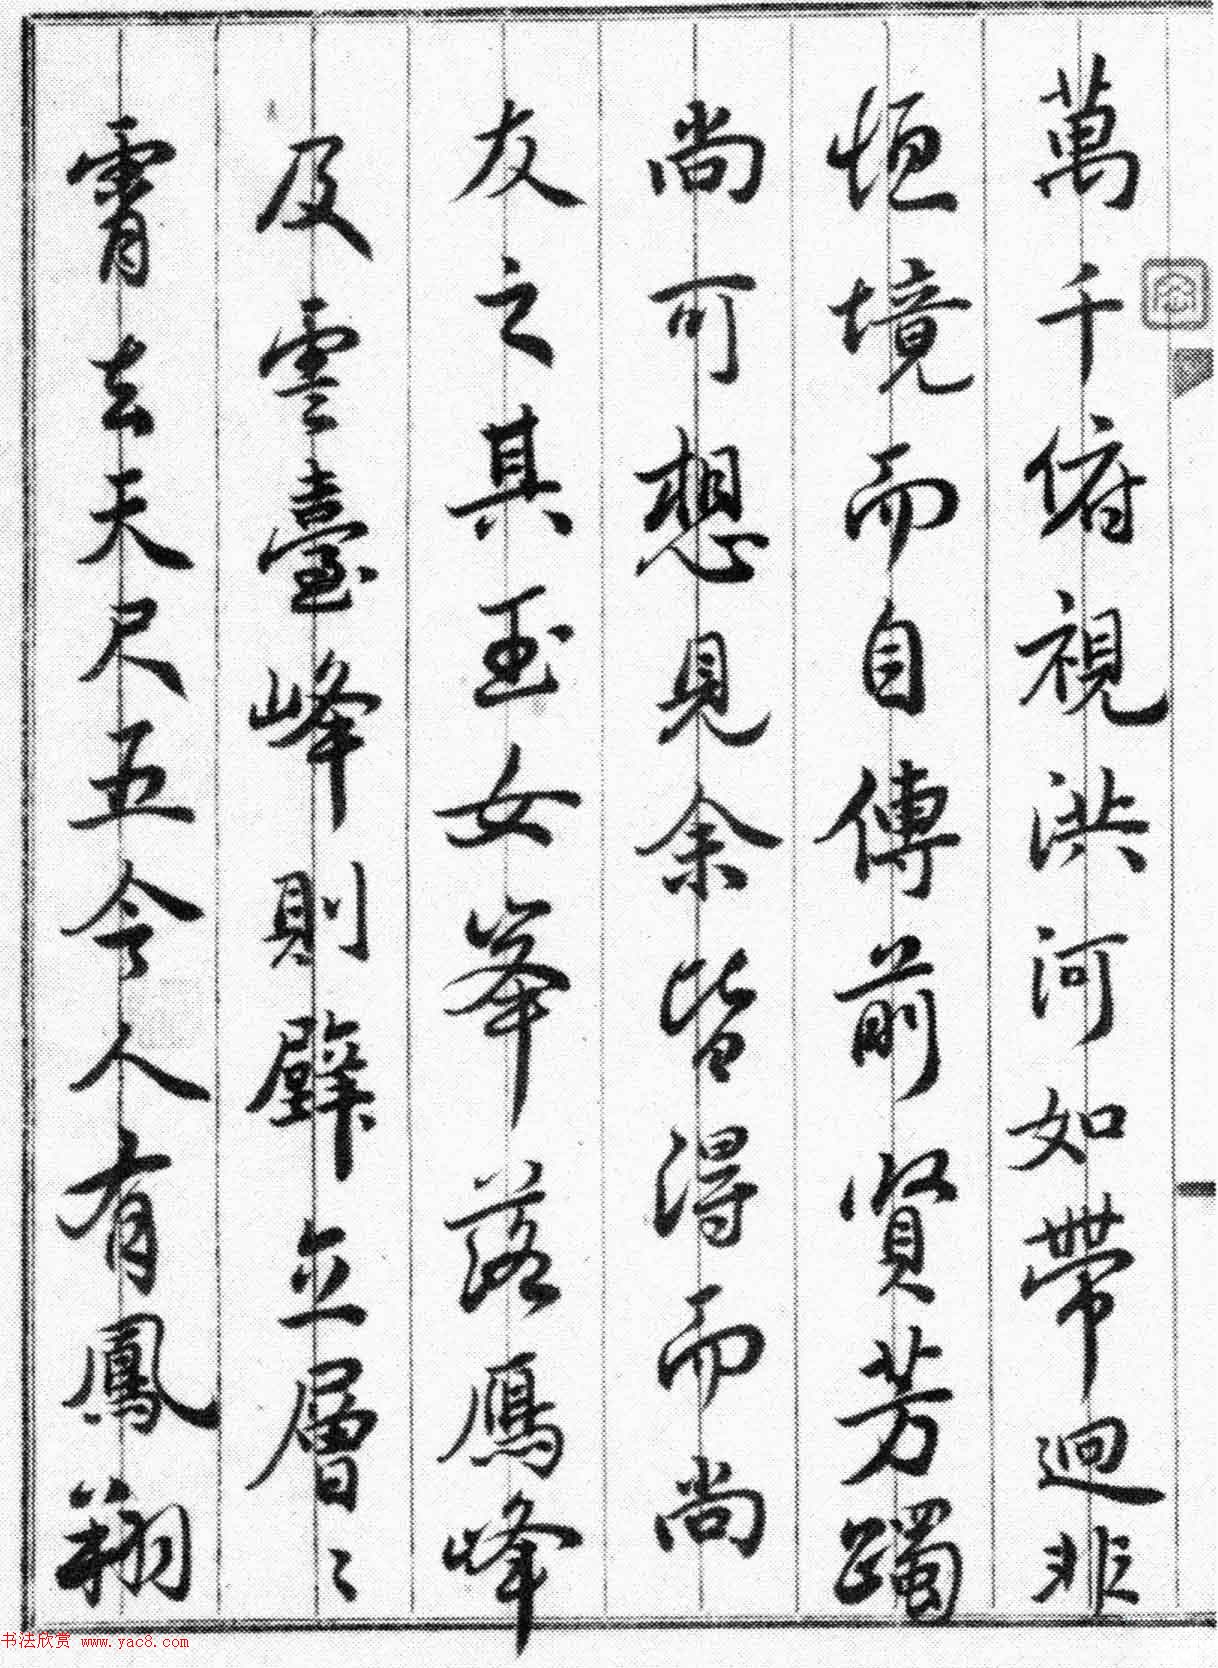 萬千俯視洪河如帶迥非
恒境而自傳前賢芳躅
尚可想見余皆得而尚
友之其玉女峯落鴈峰
及雲臺峰則壁立層〻
霄去天尺五今人有鳳翔
书法欣赏 www.yac8.com